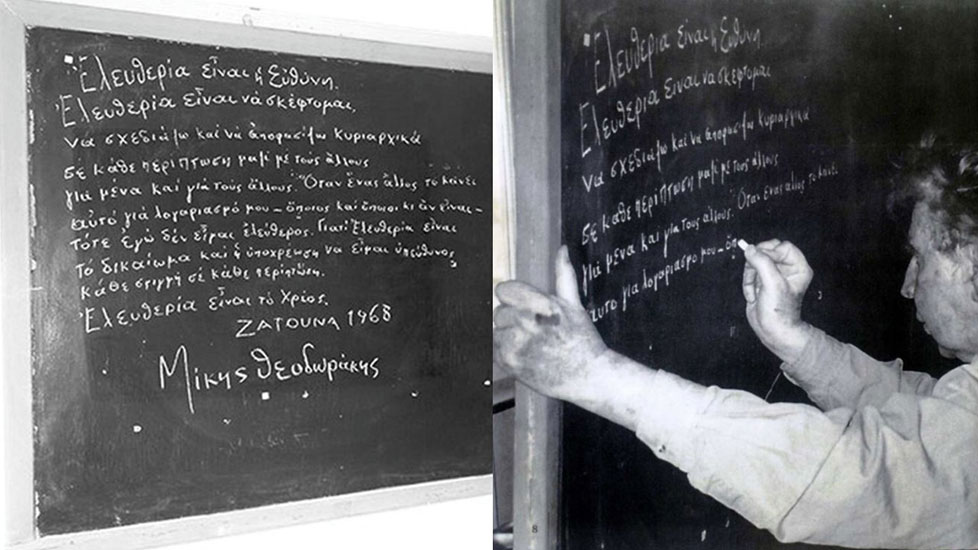 Ἐλευθερία εἶναι ἡ Εὐθύνη.
Ἐλευθερία εἶναι νά σκέφτομαι,
νά σχεδιάζω καί νά ἀποφασίζω κυριαρχικά
σέ κάθε περίπτωση μαζί μέ τούς ἄλλους
γιά μένα καί γιά τούς ἄλλους. Ὅταν ἕνας ἄλλος τό κάνει
αὐτό γιά λογαριασμό μου – ὅποιος καί ὅποιοι κι ἄν εἶναι –
τότε Ἐγώ δέν εἶμαι ἐλεύθερος. Γιατί Ἐλευθερία εἶναι
τό δικαίωμα καί ἡ ὑποχρέωση νά εἶμαι ὑπεύθυνος
κάθε στιγμή σέ κάθε περίπτωση.
Ἐλευθερία εἶναι τό Χρέος.
ΖΑΤΟΥΝΑ 1968
Μίκης Θεοδωράκης
Ἐλευθερία εἶναι ἡ Εὐθύνη
Ἐλευθερία εἶναι νά σκέφτομαι
νά σχεδιάζω καί νά ἀποφασίζω κυριαρχικά
σέ κάθε περίπτωση μαζί μέ τούς ἄλλους
γιά μένα καί γιά τούς ἄλλους. Ὅταν ἕνας ἄλλος τό κάνει
αὐτό γιά λογαριασμό μου – ὅπ
8